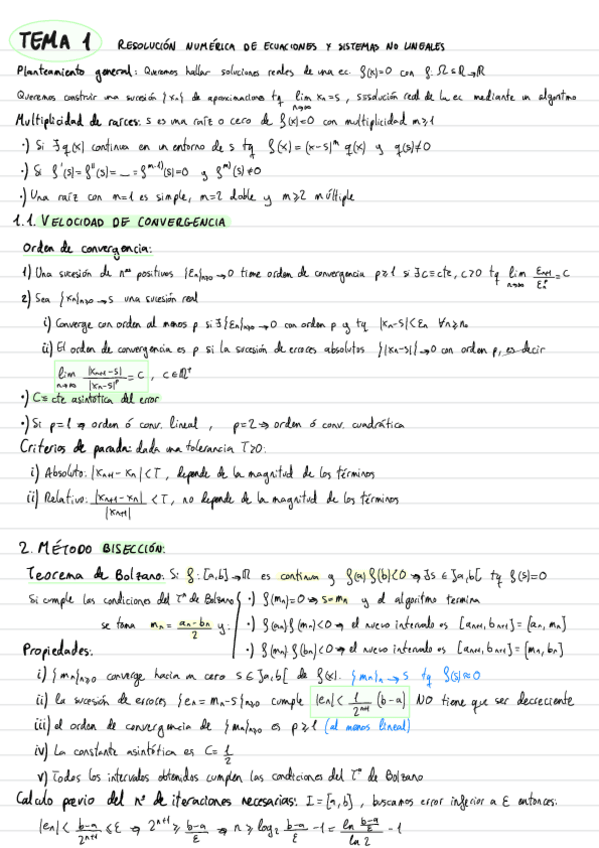 TEMA 1 RESOLUCIÓN NUMÉRICA DE ECUACIONES Y SISTEMAS NO LINEALES
Planteamiento general: Queremos hallar soluciones reales de una ec. f(x)=0 con f: Ω⊆ℝ→ℝ
Queremos construir una sucesión {xn} de aproximaciones tq lim n→∞ xn=s, s≡solución real de la ec mediante un algoritmo
Multiplicidad de raíces: s es una raíz o cero de f(x)=0 con multiplicidad m≥1
·) Si ∃ q(x) continua en un entorno de s tq f(x)=(x-s)^m q(x) y q(s)≠0
·) Si f'(s)=f''(s)=...=f^(m-1)(s)=0 y f^(m)(s)≠0
·) Una raíz con m=1 es simple, m=2 doble y m≥2 múltiple
1.1. VELOCIDAD DE CONVERGENCIA
Orden de convergencia:
1) Una sucesión de nos positivos {εn}n≥0→0 tiene orden de convergencia p≥1 si ∃C≡cte, C>0 tq lim n→∞ εn+1/εn^p = C
2) Sea {xn}n≥0→s una sucesión real
i) Converge con orden al menos p si ∃{εn}n≥0→0 con orden p y tq |xn-s|<εn ∀n≥n0
ii) El orden de convergencia es p si la sucesión de errores absolutos {|xn-s|}→0 con orden p, es decir
lim n→∞ |xn+1-s|/|xn-s|^p = C, C∈ℝ+
·) C≡cte asintótica del error
·) Si p=1 → orden ó conv. lineal, p=2 → orden ó conv. cuadrática
Criterios de parada: dada una tolerancia T>0:
i) Absoluto: |xn+1-xn|<T, depende de la magnitud de los términos
ii) Relativo: |xn+1-xn|/|xn+1| <T, no depende de la magnitud de los términos
2. MÉTODO BISECCIÓN:
Teorema de Bolzano: Si f:[a,b]→ℝ es continua y f(a)f(b)<0 → ∃s∈]a,b[ tq f(s)=0
Si cumple las condiciones del Tª de Bolzano ·) f(mn)=0 → s=mn y el algoritmo termina
se toma mn = an-bn/2 y: ·) f(an)f(mn)<0 → el nuevo intervalo es [an+1,bn+1]=[an,mn]
·) f(mn)f(bn)<0 → el nuevo intervalo es [an+1,bn+1]=[mn,bn]
Propiedades:
i) {mn}n≥0 converge hacia un cero s∈]a,b[ de f(x). {mn}n→s tq f(s)≈0
ii) la sucesión de errores {en=mn-s}n≥0 cumple |en|< 1/2^(n+1) (b-a) NO tiene que ser decreciente
iii) el orden de convergencia de {mn}n≥0 es p≥1 (al menos lineal)
iv) La constante asintótica es C=1/2
v) Todos los intervalos obtenidos cumplen las condiciones del Tª de Bolzano
Calculo previo del nº de iteraciones necesarias: I=[a,b], buscamos error inferior a ε entonces:
|en|< b-a/2^(n+1) ≤ε → 2^(n+1) ≥ b-a/ε → n≥log2 b-a/ε -1 = ln b-a/ε / ln 2 -1